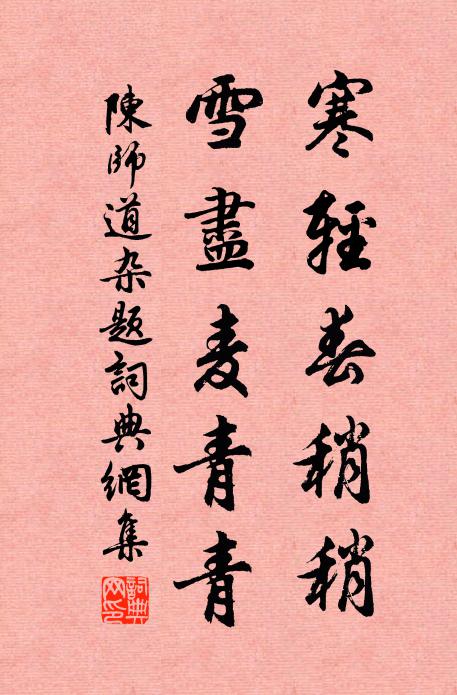 寒輕春稍稍
雪盡麦青青
陳師道杂題詞典網集
詞典
网印